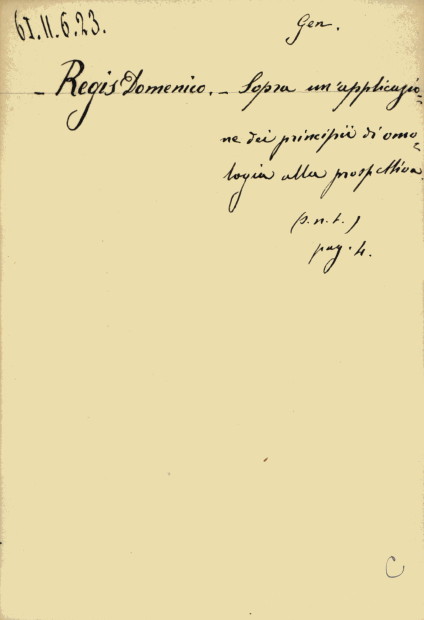 61.11.6.23.
Gen.
- Regis Domenico. - Sopra un'applicazio=
ne dei principii di omo=
logia alla prospettiva.
(s.n.t.)
pag. 4.
C